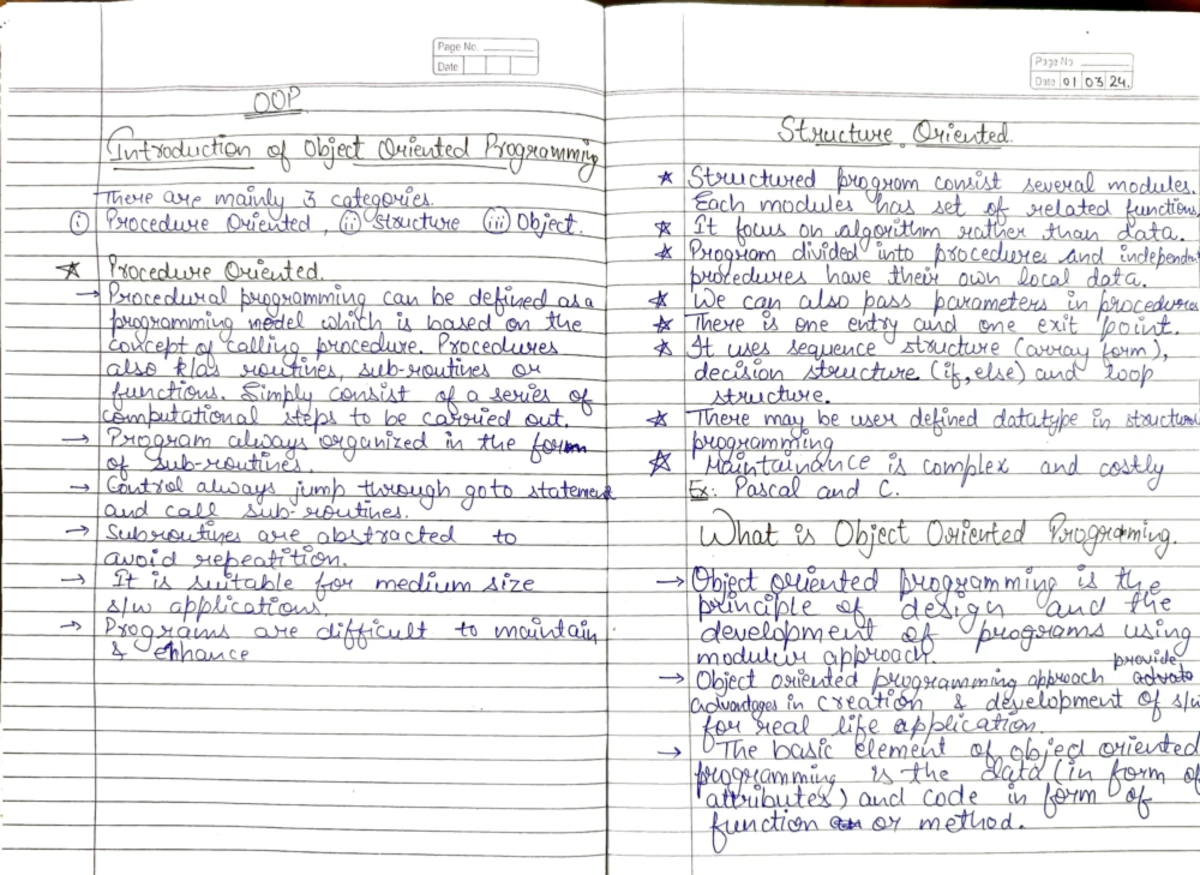 Page No.
Date
OOP
Introduction of Object Oriented Programming
There are mainly 3 categories.
(i) Procedure Oriented, (ii) Structure (iii) Object.
☆ Procedure Oriented.
→ Procedural programming can be defined as a
programming model which is based on the
concept of calling procedure. Procedures
also k/as routines, sub-routines or
functions. Simply consist of a series of
computational steps to be carried out.
→ Program always organized in the form
of sub-routines.
→ Control always jump through goto statement
and call sub-routines.
→ Subroutines are abstracted to
avoid repeatition.
→ It is suitable for medium size
s/w applications.
→ Programs are difficult to maintain
& enhance
Page No
Date 01 03 24.
Structure Oriented.
☆ Structured program consist several modules.
Each modules has set of related function
☆ It focus on algorithm rather than data.
☆ Program divided into procedures and independent
procedures have their own local data.
☆ We can also pass parameters in procedures
☆ There is one entry and one exit point.
☆ It uses sequence structure (array form),
decision structure (if, else) and loop
structure.
☆ There may be user defined datatype in structure
programming
☆ Maintainance is complex and costly
Ex: Pascal and C.
What is Object Oriented Programming.
→ Object oriented programming is the
principle of design and the
development of programs using
modular approach.
→ Object oriented programming approach provide
advantages in creation & development of s/w
for real life application.
→ The basic element of object oriented
programming is the data (in form of
attributes) and code in form of
function or method.